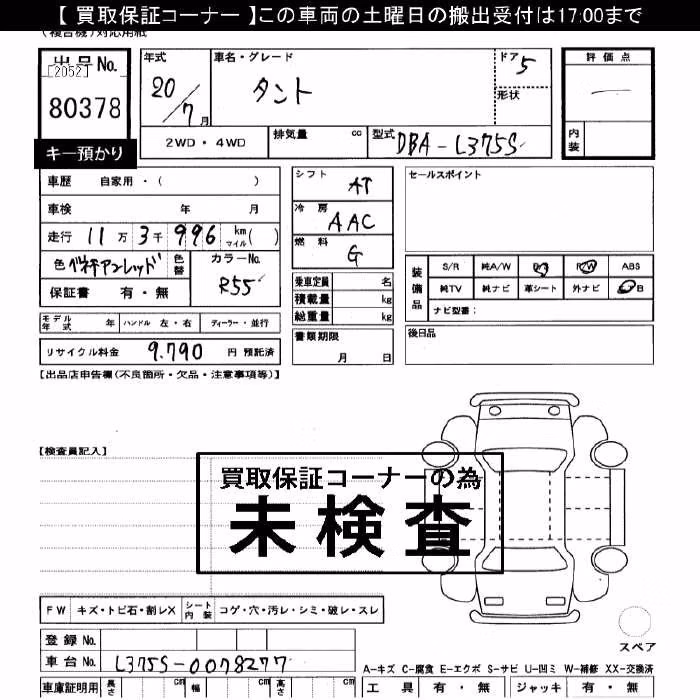 【 買取保証コーナー 】この車両の土曜日の搬出受付は17:00まで
(複合機)対応用紙
出品No.
[2052]
80378
キー預かり
年式
20/7月
車名・グレード
タント
ドア
5
形状
評価点
内装
2WD・4WD
排気量 cc
型式 DBA-L375S
車歴 自家用・( )
車検 年 月
走行 11万3千996 km マイル( )
色 色替
カラーNo.
R55
保証書 有・無
シフト AT
冷房 AAC
燃料 G
乗車定員 名
積載量 kg
総重量 kg
書類期限
月 日
セールスポイント
装備品
S/R 純A/W P/S P/W ABS
純TV 純ナビ 革シート 外ナビ B
ナビ型番:
後日品
モデル年式 年 ハンドル 左・右 ディーラー・並行
リサイクル料金 9,790 円 預託済
【出品店申告欄(不良箇所・欠品・注意事項等)】
【検査員記入】
買取保証コーナーの為
未検査
FW キズ・トビ石・割レX シート内装 コゲ・穴・汚レ・シミ・破レ・スレ
スペア
登録No.
車台No. L375S-0078277
A-キズ C-腐食 E-エクボ S-サビ U-凹ミ W-補修 XX-交換済
車庫証明用 長さ cm 幅 cm 高さ cm
工具 有・無 ジャッキ 有・無